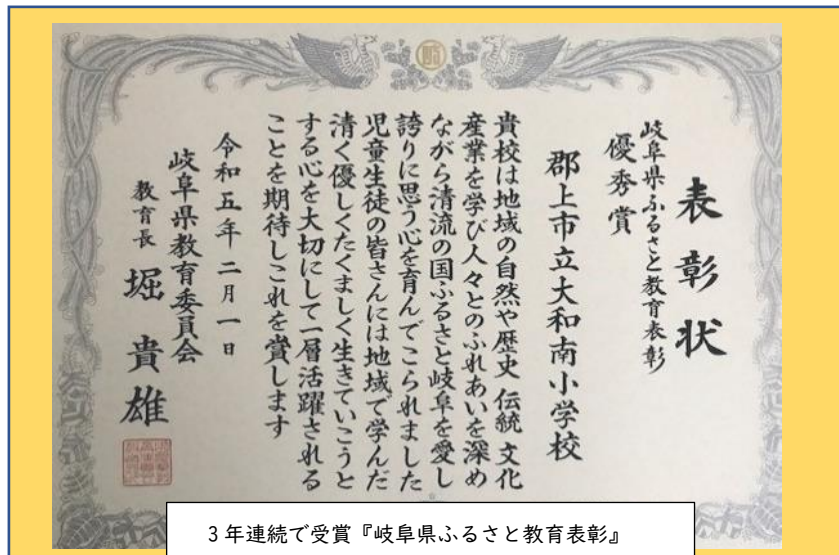 表彰状
岐阜県ふるさと教育表彰
優秀賞
郡上市立大和南小学校
貴校は地域の自然や歴史 伝統 文化
産業を学び人々とのふれあいを深め
ながら清流の国ふるさと岐阜を愛し
誇りに思う心を育んでこられました
児童生徒の皆さんには地域で学んだ
清く優しくたくましく生きていこうと
する心を大切にして一層活躍される
ことを期待しこれを賞します
令和五年二月一日
岐阜県教育委員会
教育長 堀 貴雄
3年連続で受賞『岐阜県ふるさと教育表彰』